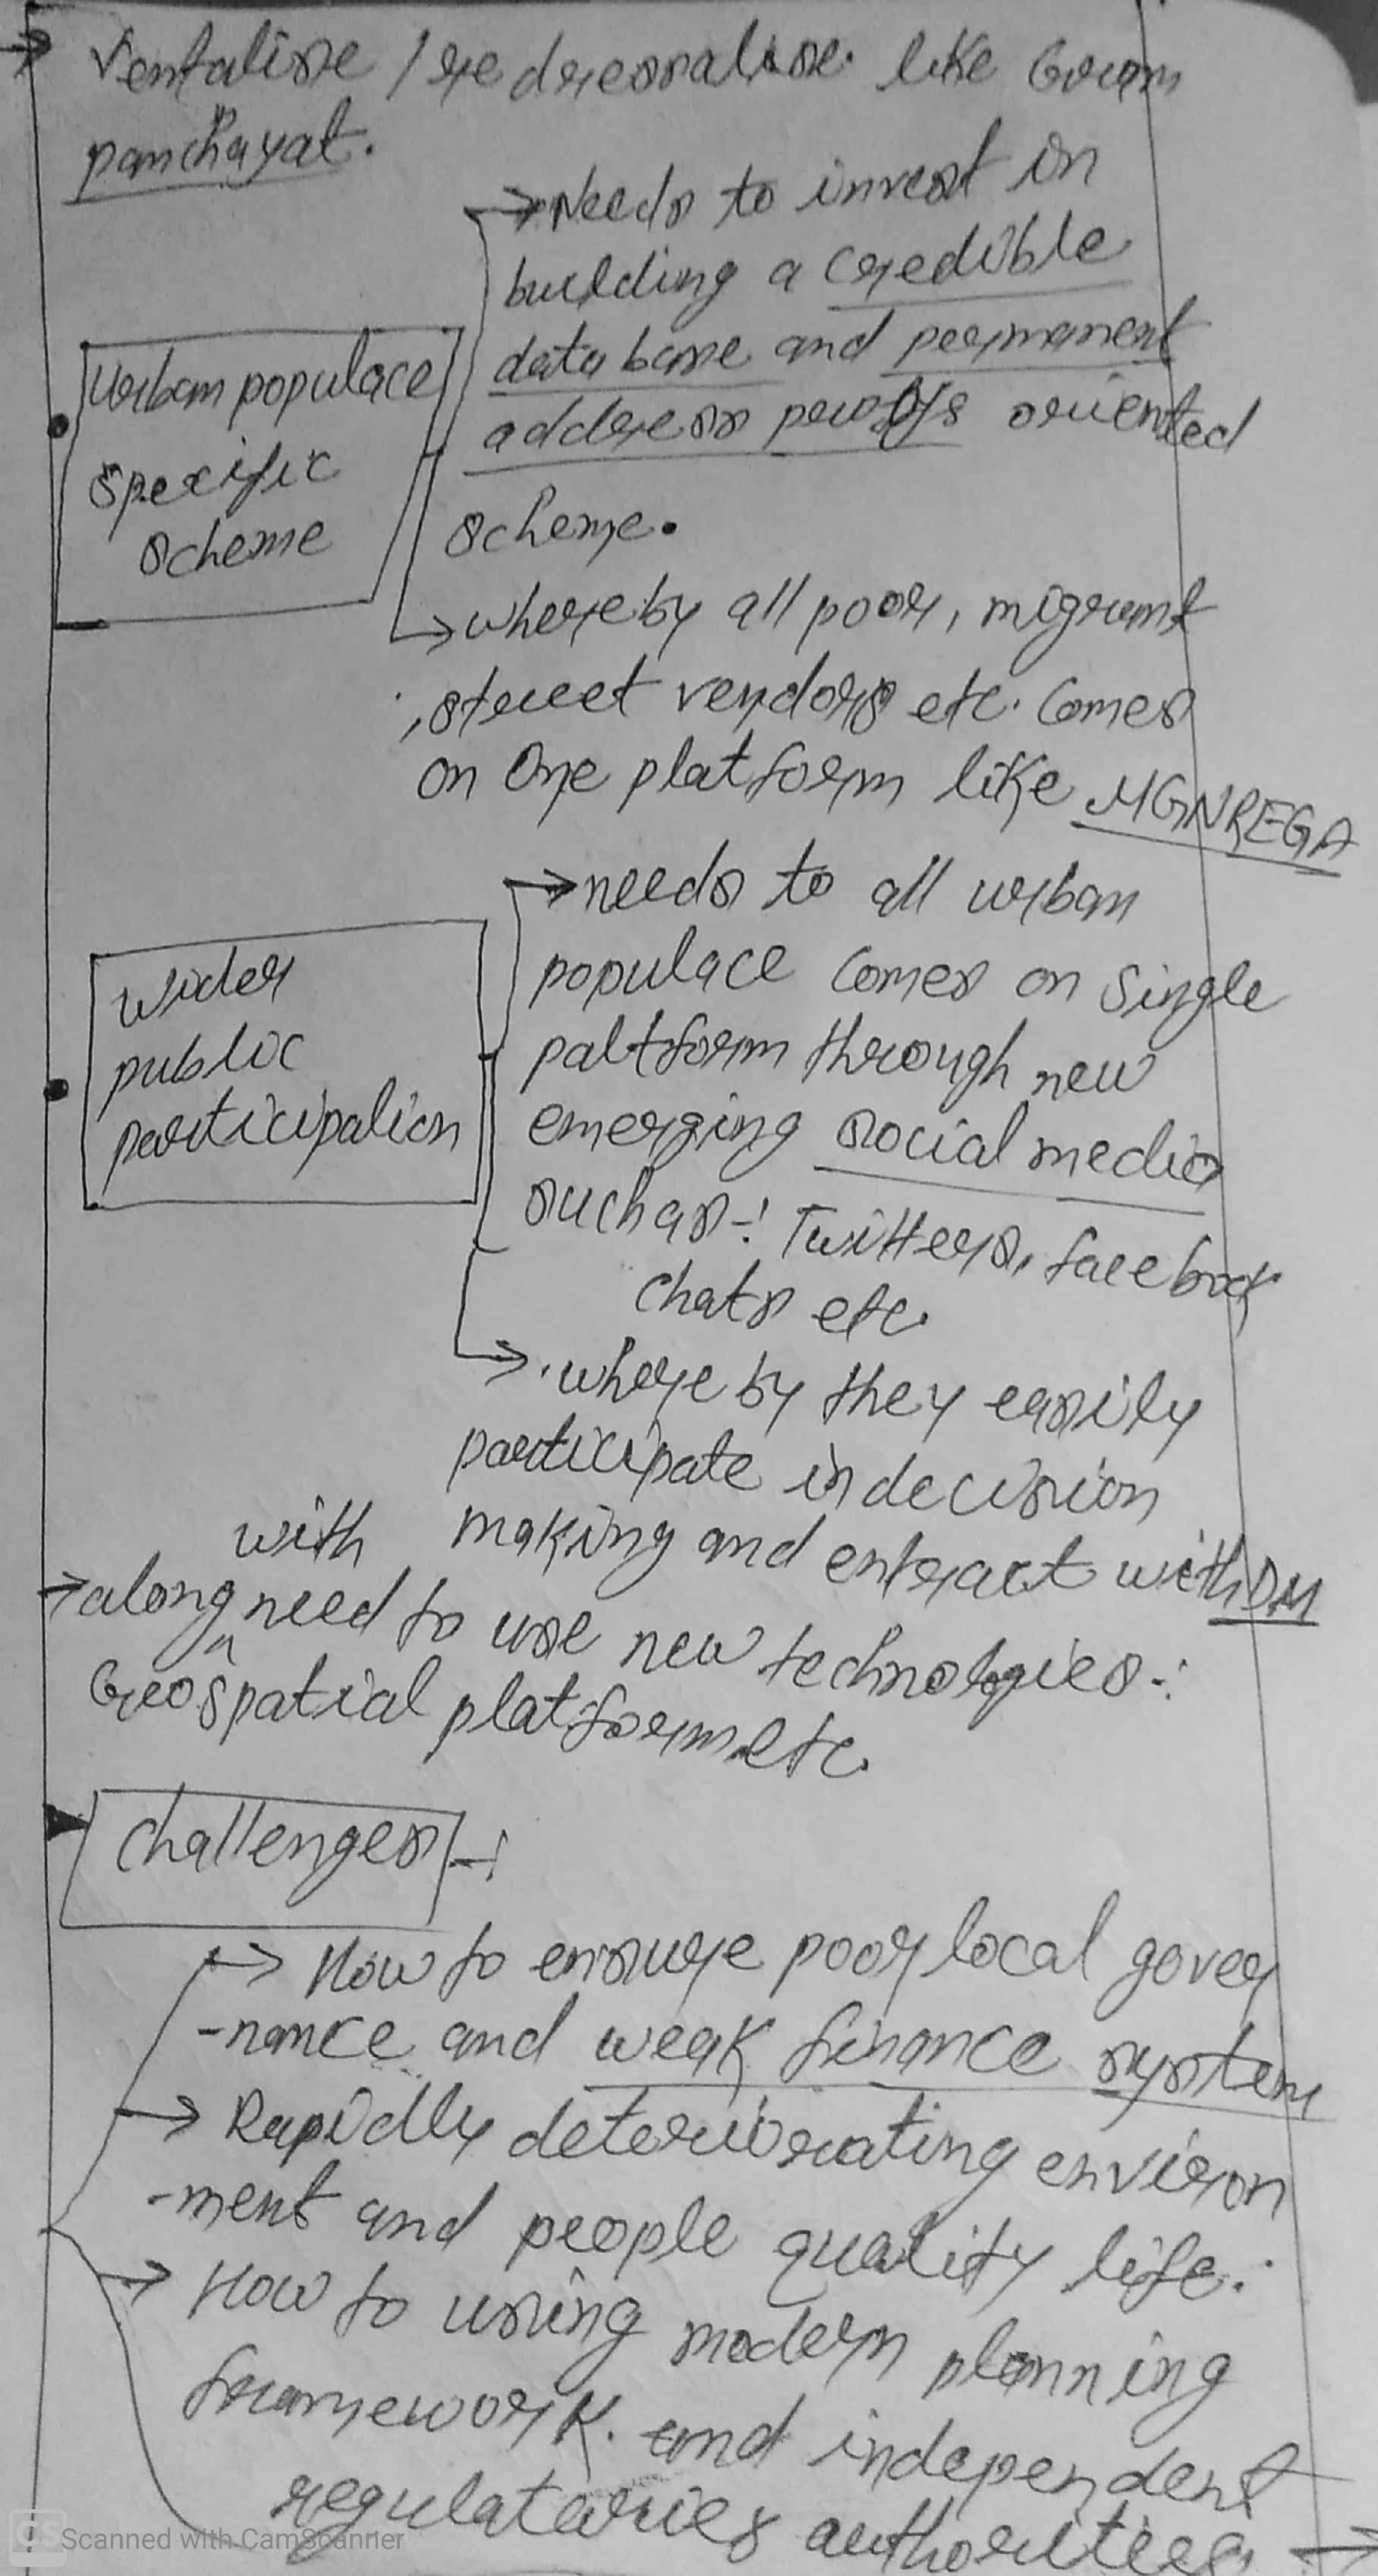 → Ventalise / redressalise like Gram
panchayat.
→ Needs to invest in
building a credible
data base and permanent
address proofs oriented
scheme.
Urban populace
specific
scheme
→ whereby all poor, migrant
, street vendors etc. comes
on one platform like MGNREGA
→ needs to all urban
populace comes on single
paltform through new
emerging social media
such as -: Twitters, facebook
chats etc.
wider
public
participation
→ whereby they easily
participate in decision
making and enteract with DM
→ along with need to use new technologies -:
Geospatial platform etc.
challenges -:
→ How to ensure poor local gover
-nance and weak finance system
→ Rapidly deteriorating environ
-ment and people quality life.
→ How to using modern planning
framework. and independent
regulataries authorities. →
Scanned with CamScanner